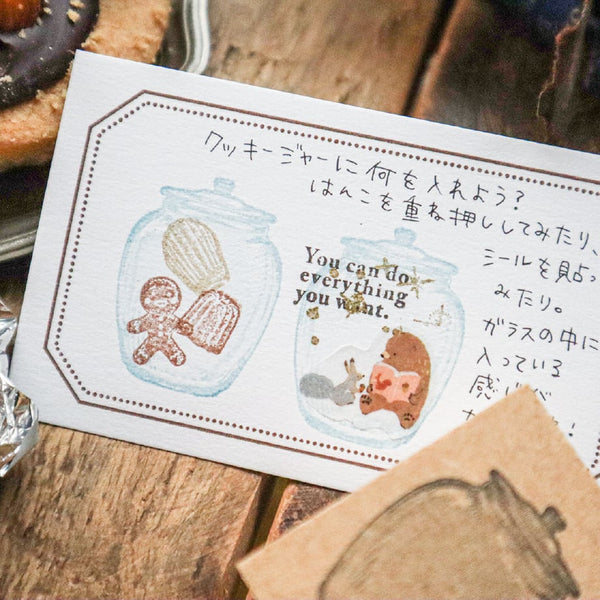 クッキージャーに何を入れよう?
はんこを重ね押ししてみたり、
シールを貼っ
みたり。
ガラスの中に
入っている
感じ
You can do
everything
you want.